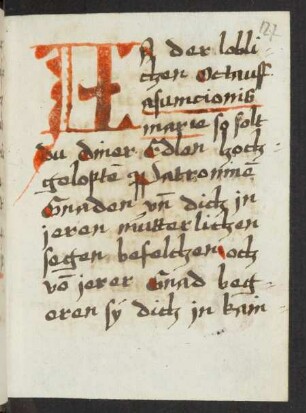 127
IN der lobli-
chen Octauff
asumcionis
marie so solt
du diner Edlen hoch
gelopten patronnen
Gnaden vn̄ dich in
jeren mutterlichen
segen befelchen och
vō jerer Gnad beg
eren sy dich in kain